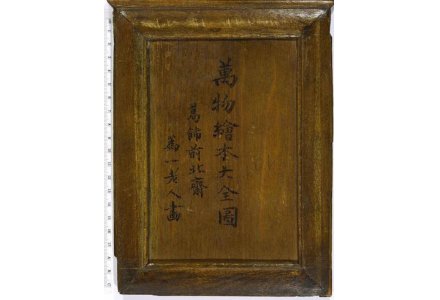 萬物繪本大全圖
葛飾前北齋
爲一老人畫